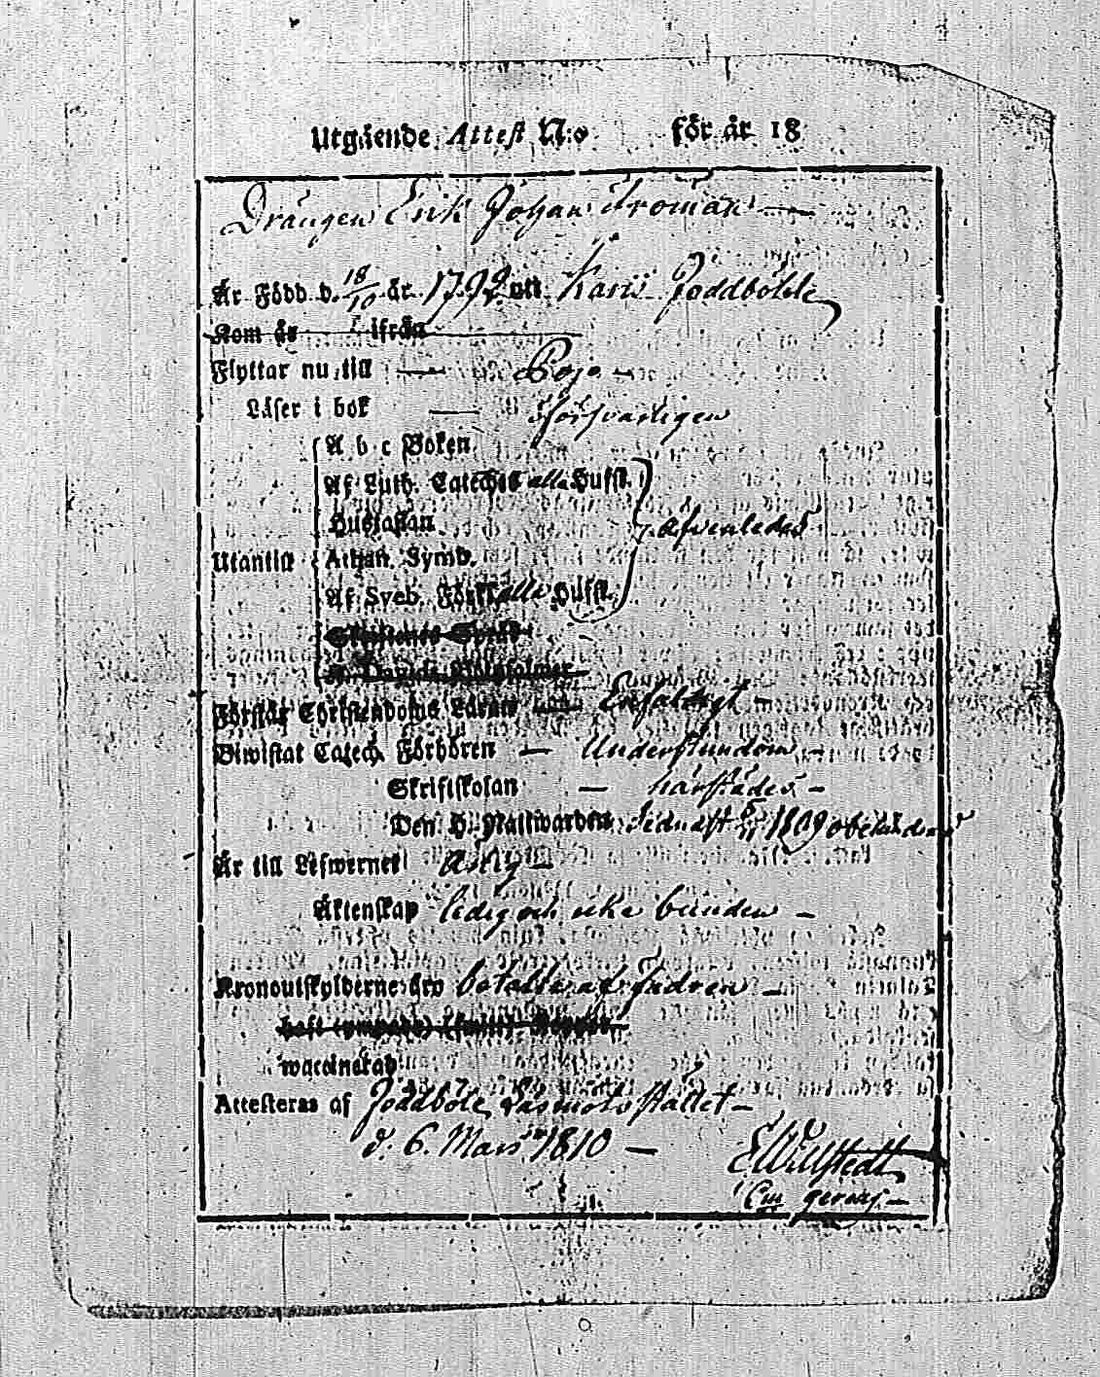 Utgående Attest N:o för år 18
Drängen Erik Johan Froman
Är Född d. 18/10 år 1792 uti Karis Joddböhle
Kom år ifrån
Flyttar nu till — Pojo —
Läser i bok — försvarligen
A b c Boken
Af Luth. Catechis alla Hufst.
Hustaflan
äfvenledes
Utantill
Athan. Symb.
Af Sveb. Förkl alla Hufst.
Skriftenes Språk
Davids
Förstår Christendoms Läran Enfaldigt —
Biwistat Catech. Förhören — Understundom —
Skriftskolan — härstädes —
Den H. Nattwarden sednast 1809
Är till Lefwernet ärlig —
Äktenskap ledig och icke bunden —
Kronoutskylderne äro betalte af Fadren —
haft
waccinerad
Attesteras af Joddböle Läsmötsstället —
d. 6. Mars 1810 —
E Willstedt